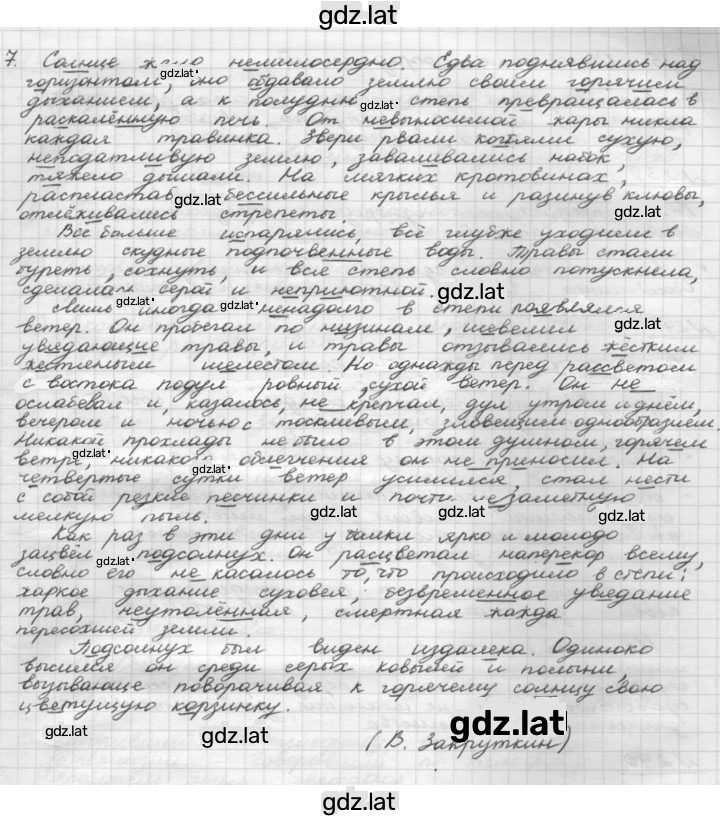 gdz.lat
7. Солнце жгло немилосердно. Едва поднявшись над
gdz.lat
горизонтом, оно обдавало землю своим горячим
дыханием, а к полудню степь превращалась в
gdz.lat
раскалённую печь. От невыносимой жары никла
каждая травинка. Звери рвали когтями сухую,
неподатливую землю, заваливались набок,
тяжело дышали. На мягких кротовинах,
распластав бессильные крылья и разинув клювы,
gdz.lat
отлёживались стрепеты.
gdz.lat
Всё больше испарялись, всё глубже уходили в
землю скудные подпочвенные воды. Травы стали
буреть, сохнуть, и вся степь словно потускнела,
сделалась серой и неприютной.
gdz.lat
Лишь иногда ненадолго в степи появлялся
gdz.lat gdz.lat
ветер. Он пробегал по низинам, шевелил
увядающие травы, и травы отзывались жёстким
жестяным шелестом. Но однажды перед рассветом
с востока подул ровный, сухой ветер. Он не
ослабевал и, казалось, не крепчал, дул утром и днём,
вечером и ночью с тоскливым, зловещим однообразием.
Никакой прохлады не было в этом душном, горячем
gdz.lat
ветре, никакого облегчения он не приносил. На
gdz.lat
четвёртые сутки ветер усилился, стал нести
с собой резкие песчинки и почти незаметную
gdz.lat gdz.lat gdz.lat
мелкую пыль.
Как раз в эти дни у балки ярко и молодо
зацвёл подсолнух. Он расцветал наперекор всему,
gdz.lat
словно его не касалось то, что происходило в степи:
жаркое дыхание суховея, безвременное увядание
трав, неутолённая, смертная жажда
пересохшей земли.
Подсолнух был виден издалека. Одиноко
высился он среди серых ковылей и полыни,
вызывающе поворачивая к горячему солнцу свою
цветущую корзинку.
gdz.lat gdz.lat gdz.lat
(В. Закруткин)
gdz.lat